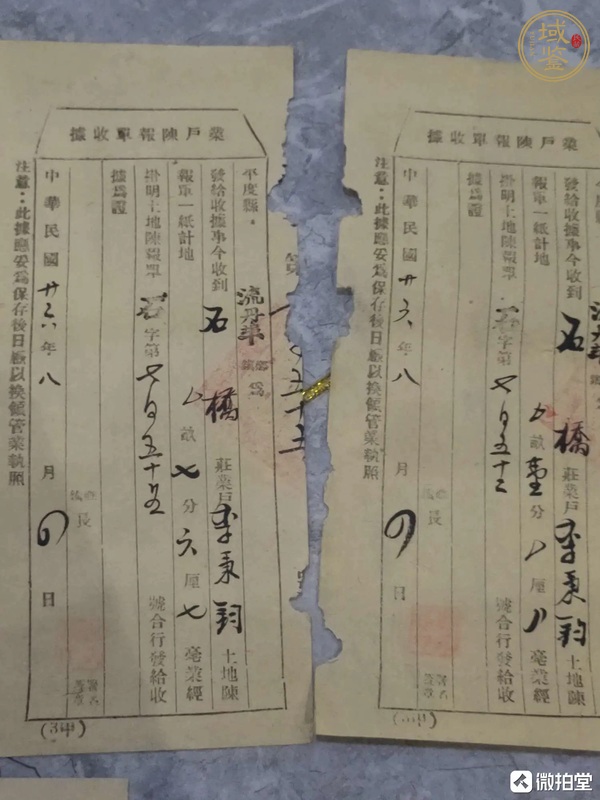 域鉴
據收單報陳戶業
平度縣
流丹華鄉鎮為
發給收據事今收到
石橋莊業戶李秉鈞土地陳
報單一紙計地
畝七分六厘七毫業經
掛明土地陳報單
若字第七百五十五號合行發給收
據爲證
長
署名蓋章
中華民國廿六年八月四日
注意：此據應妥爲保存後日憑以換領管業執照
第
據收單報陳戶業
發給收據事今收到
石橋莊業戶李秉鈞土地陳
報單一紙計地
畝壹分八厘八毫業經
掛明土地陳報單
若字第七百五十三號合行發給收
據爲證
長
署名蓋章
中華民國廿六年八月四日
注意：此據應妥爲保存後日憑以換領管業執照
微拍堂